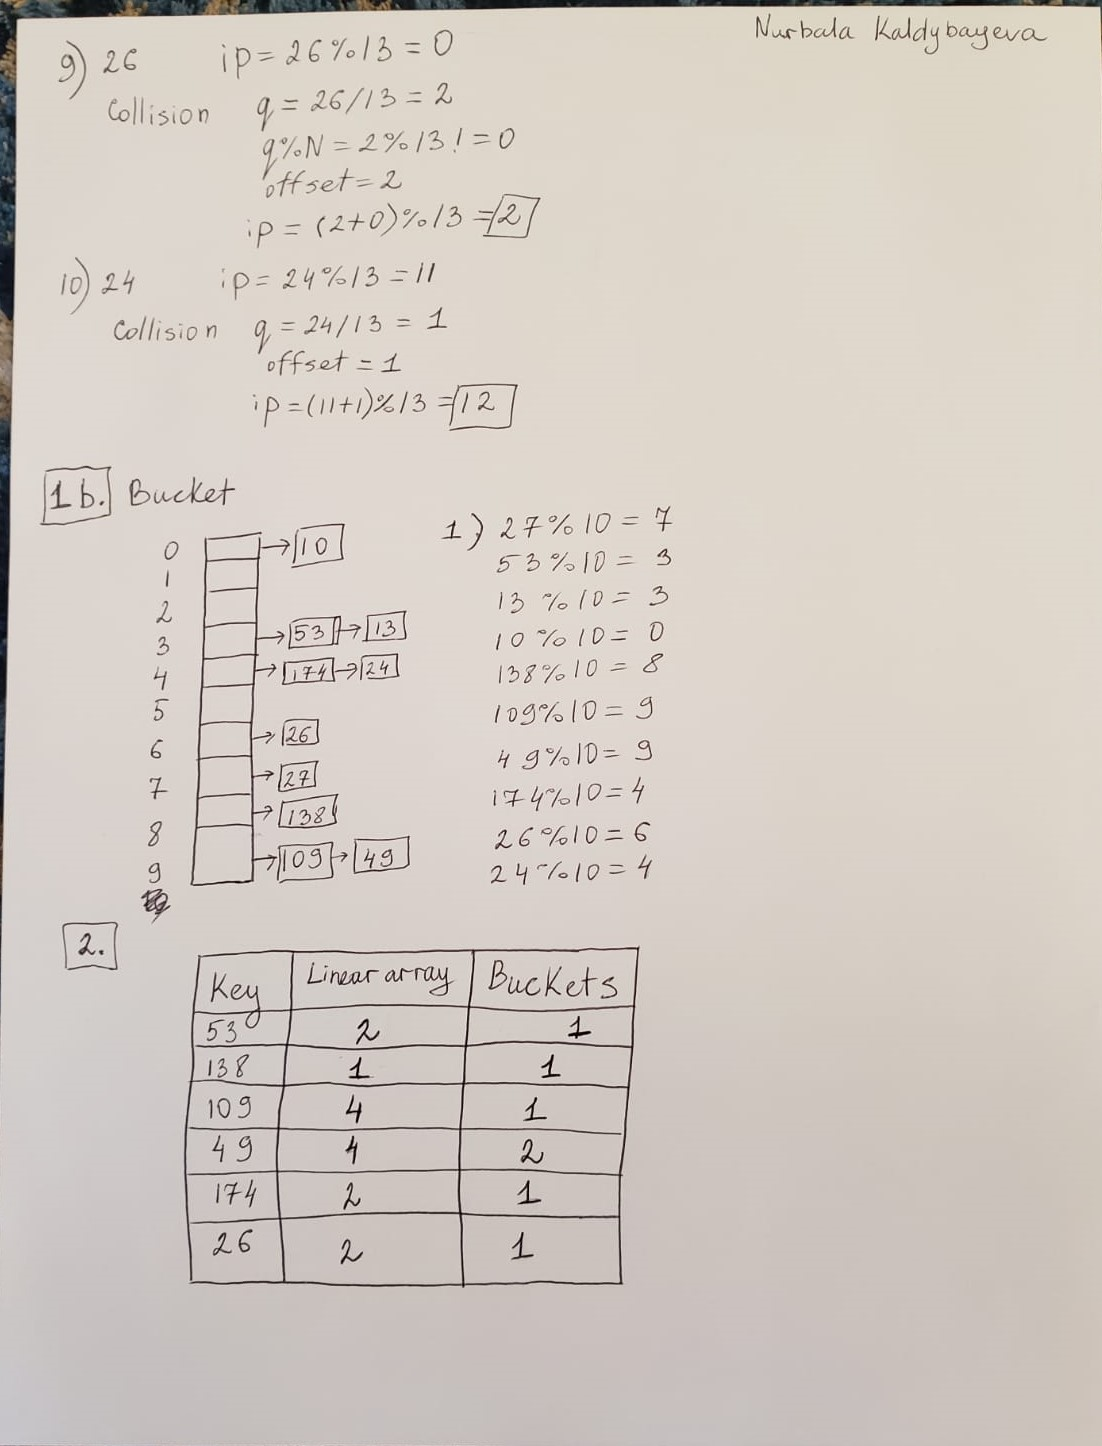 Nurbala Kaldybayeva
9) 26 ip = 26%13 = 0
Collision q = 26/13 = 2
q%N = 2%13 != 0
offset = 2
ip = (2+0)%13 = 2
10) 24 ip = 24%13 = 11
Collision q = 24/13 = 1
offset = 1
ip = (11+1)%13 = 12
1b. Bucket
0 → 10
1
2
3 → 53 → 13
4 → 174 → 24
5
6 → 26
7 → 27
8 → 138
9 → 109 → 49
1) 27%10 = 7
53%10 = 3
13%10 = 3
10%10 = 0
138%10 = 8
109%10 = 9
49%10 = 9
174%10 = 4
26%10 = 6
24%10 = 4
2.
Key Linear array Buckets
53 2 1
138 1 1
109 4 1
49 4 2
174 2 1
26 2 1